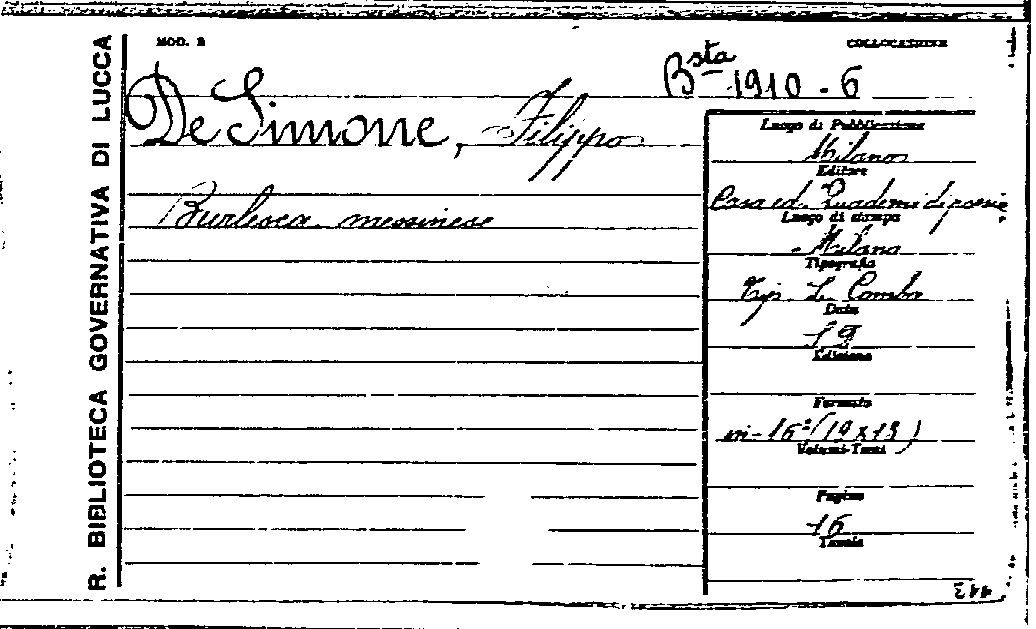 R. BIBLIOTECA GOVERNATIVA DI LUCCA
MOD. B
COLLOCAZIONE
Bsta 1910-6
De Simone, Filippo
Burlesca messinese
Luogo di Pubblicazione
Milano
Editore
Casa ed. Quaderni di poesia
Luogo di stampa
Milano
Tipografia
Tip. L. Combo
Data
19
Edizione
Formato
in-16º (19 x 13)
Volumi-Tomi
Pagine
16
Tavole